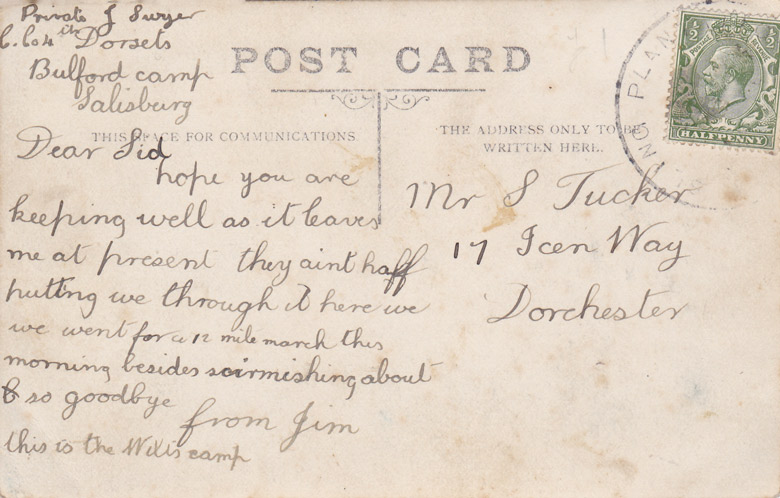 Private J Swyer
C. Co 4th Dorsets
Bulford camp
Salisburg
POST CARD
THIS SPACE FOR COMMUNICATIONS.
THE ADDRESS ONLY TO BE
WRITTEN HERE.
Dear Sid
hope you are
keeping well as it leaves
me at present they aint haff
putting we through it here we
we went for a 12 mile march this
morning besides scirmishing about
& so goodbye
from Jim
this is the Wilts camp
Mr S Tucker
17 Icen Way
Dorchester
½ ½
POSTAGE
HALFPENNY
PLAN